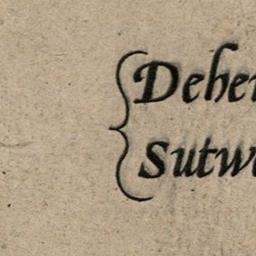 Dehe
Sutw